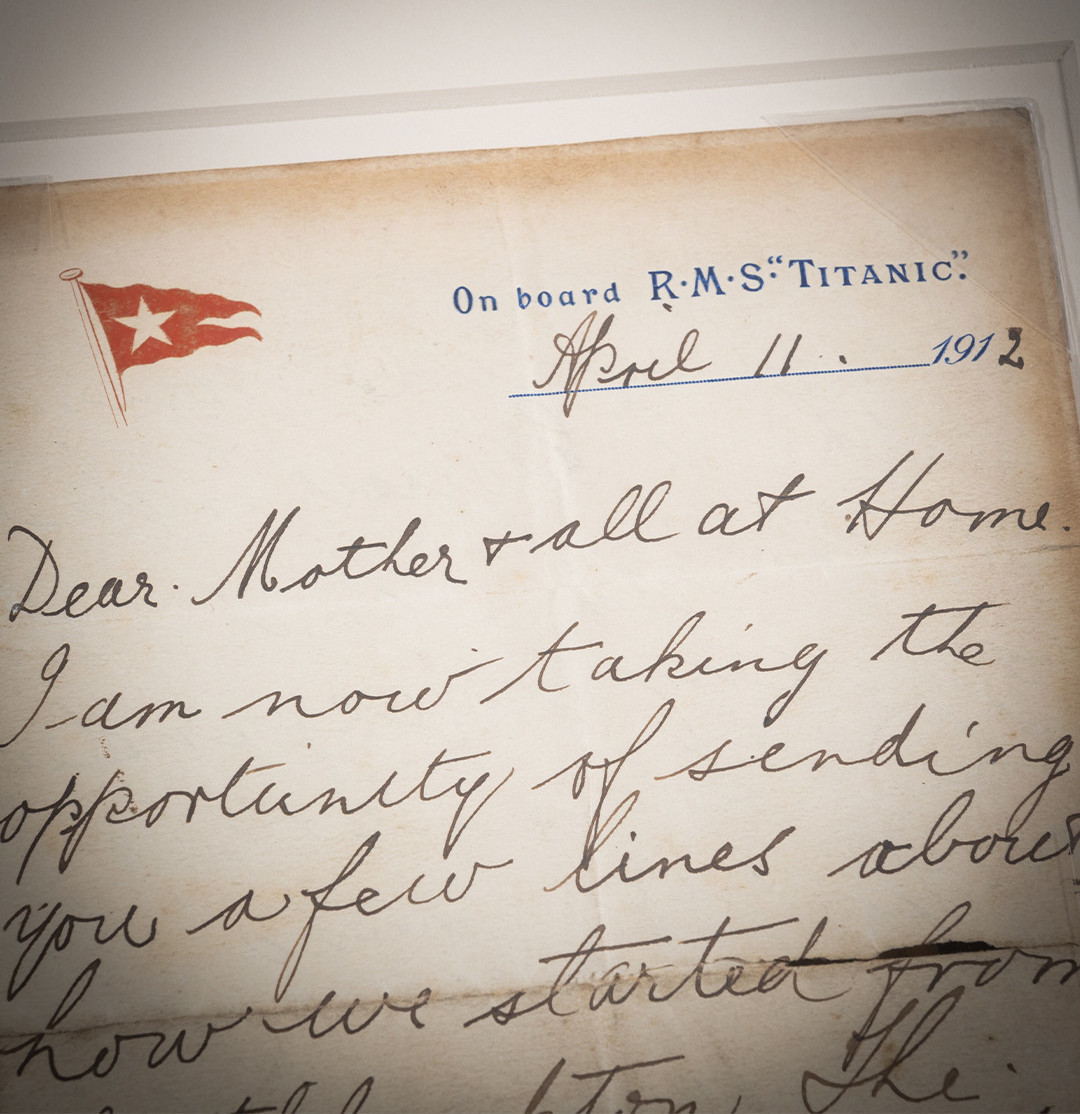 On board R·M·S· "TITANIC".
April 11. 1912
Dear. Mother & all at Home.
I am now taking the
opportunity of sending
you a few lines about
how we started from
The